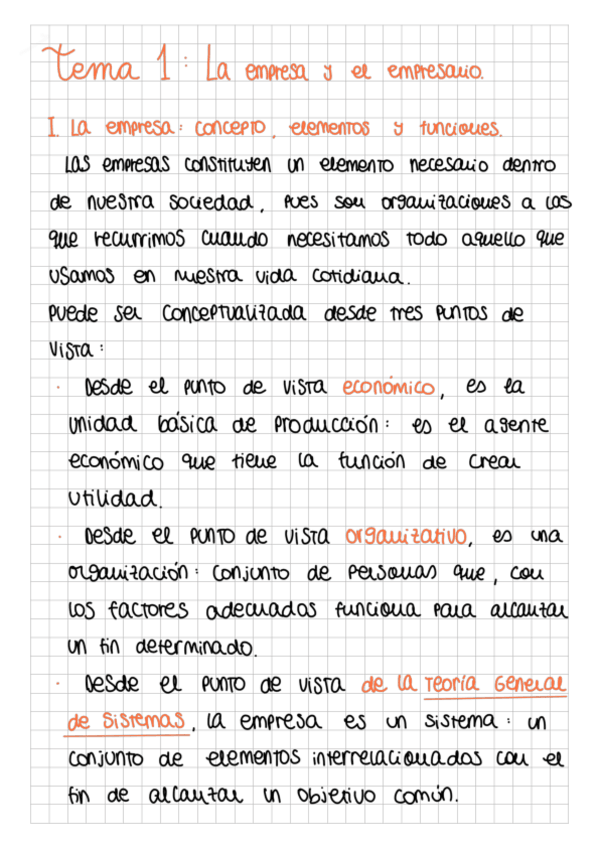 Tema 1: La empresa y el empresario.
I. La empresa: concepto, elementos y funciones.
Las empresas constituyen un elemento necesario dentro
de nuestra sociedad, pues son organizaciones a las
que recurrimos cuando necesitamos todo aquello que
usamos en nuestra vida cotidiana.
Puede ser conceptualizada desde tres puntos de
vista:
· Desde el punto de vista económico, es la
unidad básica de producción: es el agente
económico que tiene la función de crear
utilidad.
· Desde el punto de vista organizativo, es una
organización: conjunto de personas que, con
los factores adecuados funciona para alcanzar
un fin determinado.
· Desde el punto de vista de la Teoría General
de Sistemas, la empresa es un sistema: un
conjunto de elementos interrelacionados con el
fin de alcanzar un objetivo común.